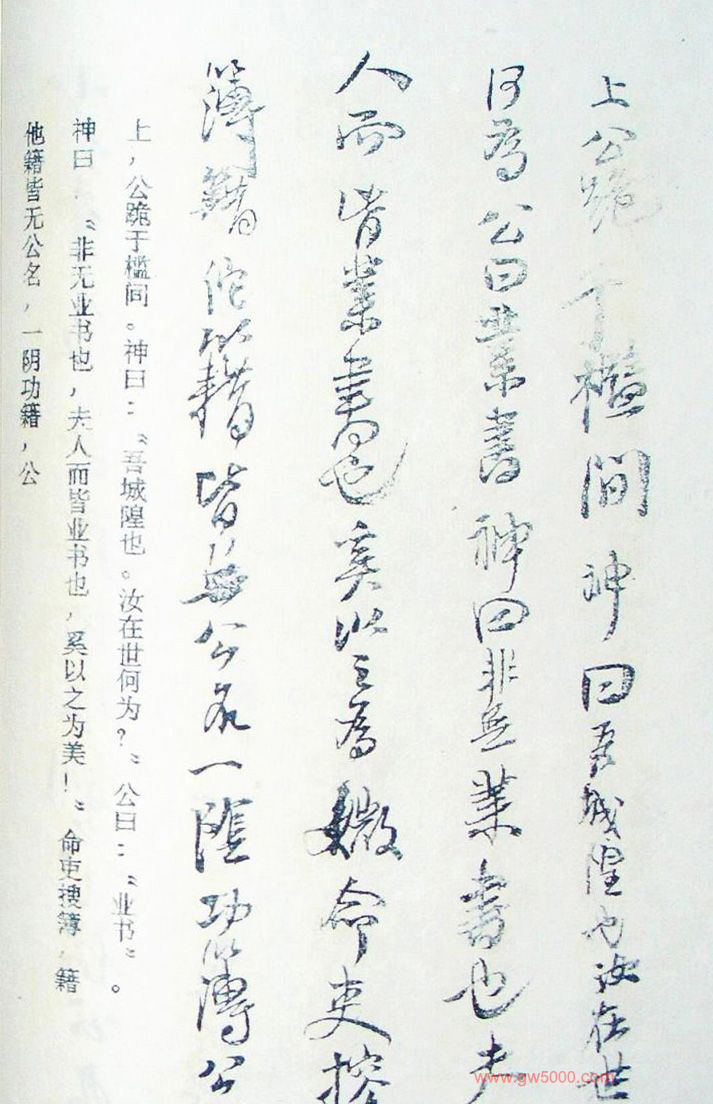 上公跪于槛間神曰吾城隍也汝在世
何為公曰業書神曰非無業書也夫
人而皆業書也奚以之為媺命吏搜
簿籍佗籍皆無公名一陰功簿公
上，公跪于槛间。神曰：“吾城隍也。汝在世何为？”公曰：“业书”。
神曰：“非无业书也，夫人而皆业书也，奚以之为美！”命吏搜簿，籍
他籍皆无公名，一阴功籍，公
www.gw5000.com